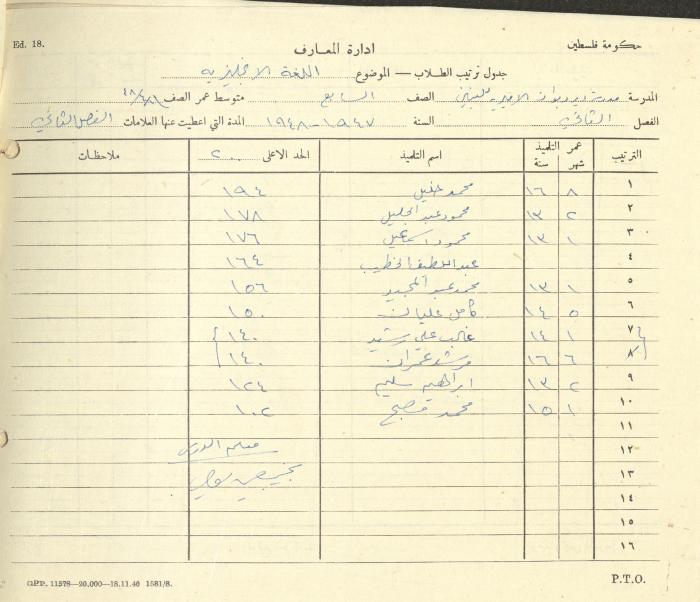 Ed. 18.
حكومة فلسطين
ادارة المعارف
جدول ترتيب الطلاب — الموضوع اللغة الانجليزيه
المدرسة الصف السابع متوسط عمر الصف
الفصل الثاني السنة ١٩٤٧-١٩٤٨ المدة التي اعطيت عنها العلامات الفصل الثاني
الترتيب عمر التلميذ شهر سنة اسم التلميذ الحد الاعلى ٢٠٠ ملاحظات
١ ٨ ١٦ محمد خليل ١٩٤
٢ ٢ ١٣ محمود عبد الجليل ١٧٨
٣ ١ ١٣ محمود اسماعيل ١٧٦
٤ عبد اللطيف الخطيب ١٦٤
٥ ١ ١٣ محمد عبد المجيد ١٥٦
٦ ٥ ١٤ كامل عليان ١٥٠
٧ ١ ١٤ غالب علي رشيد ١٤٠
٨ ٦ ١٦ مرشد عمران ١٤٠
٩ ٢ ١٣ ابراهيم سليم ١٢٤
١٠ ١ ١٥ محمد ١٠٢
١١
١٢ معلم الدرس
١٣
١٤
١٥
١٦
GPP. 11578—20,000—18.11.46 1581/8.
P.T.O.